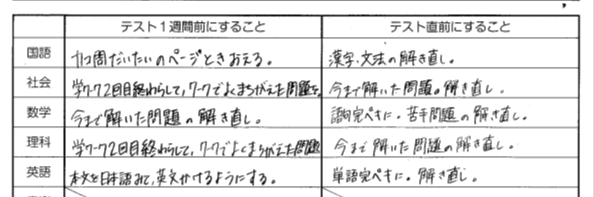 テスト1週間前にすること テスト直前にすること
国語 だいたいのページときおえる。 漢字、文法の解き直し。
社会 学ワーク2回目終わらして、ワークでよくまちがえた問題を。 今まで解いた問題の解き直し。
数学 今まで解いた問題の解き直し。 完ペキに。苦手問題の解き直し。
理科 学ワーク2回目終わらして、ワークでよくまちがえた問題 今まで解いた問題の解き直し。
英語 本文を日本語みて、英文かけるようにする。 単語完ペキに。解き直し。